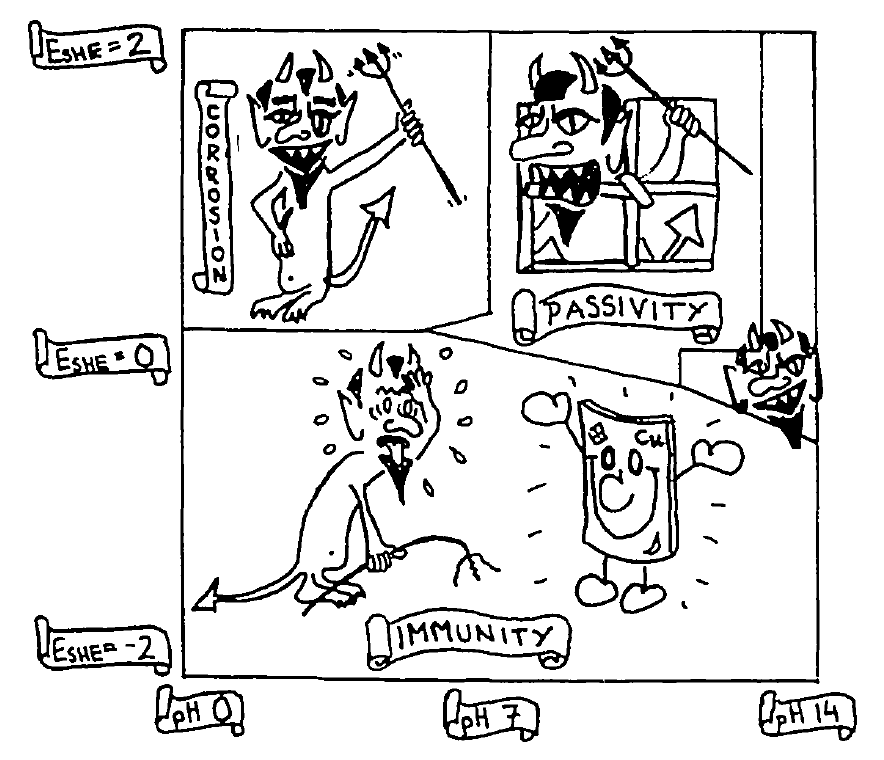 ESHE = 2
CORROSION
PASSIVITY
ESHE = 0
Cu
ESHE = -2
IMMUNITY
pH 0
pH 7
pH 14